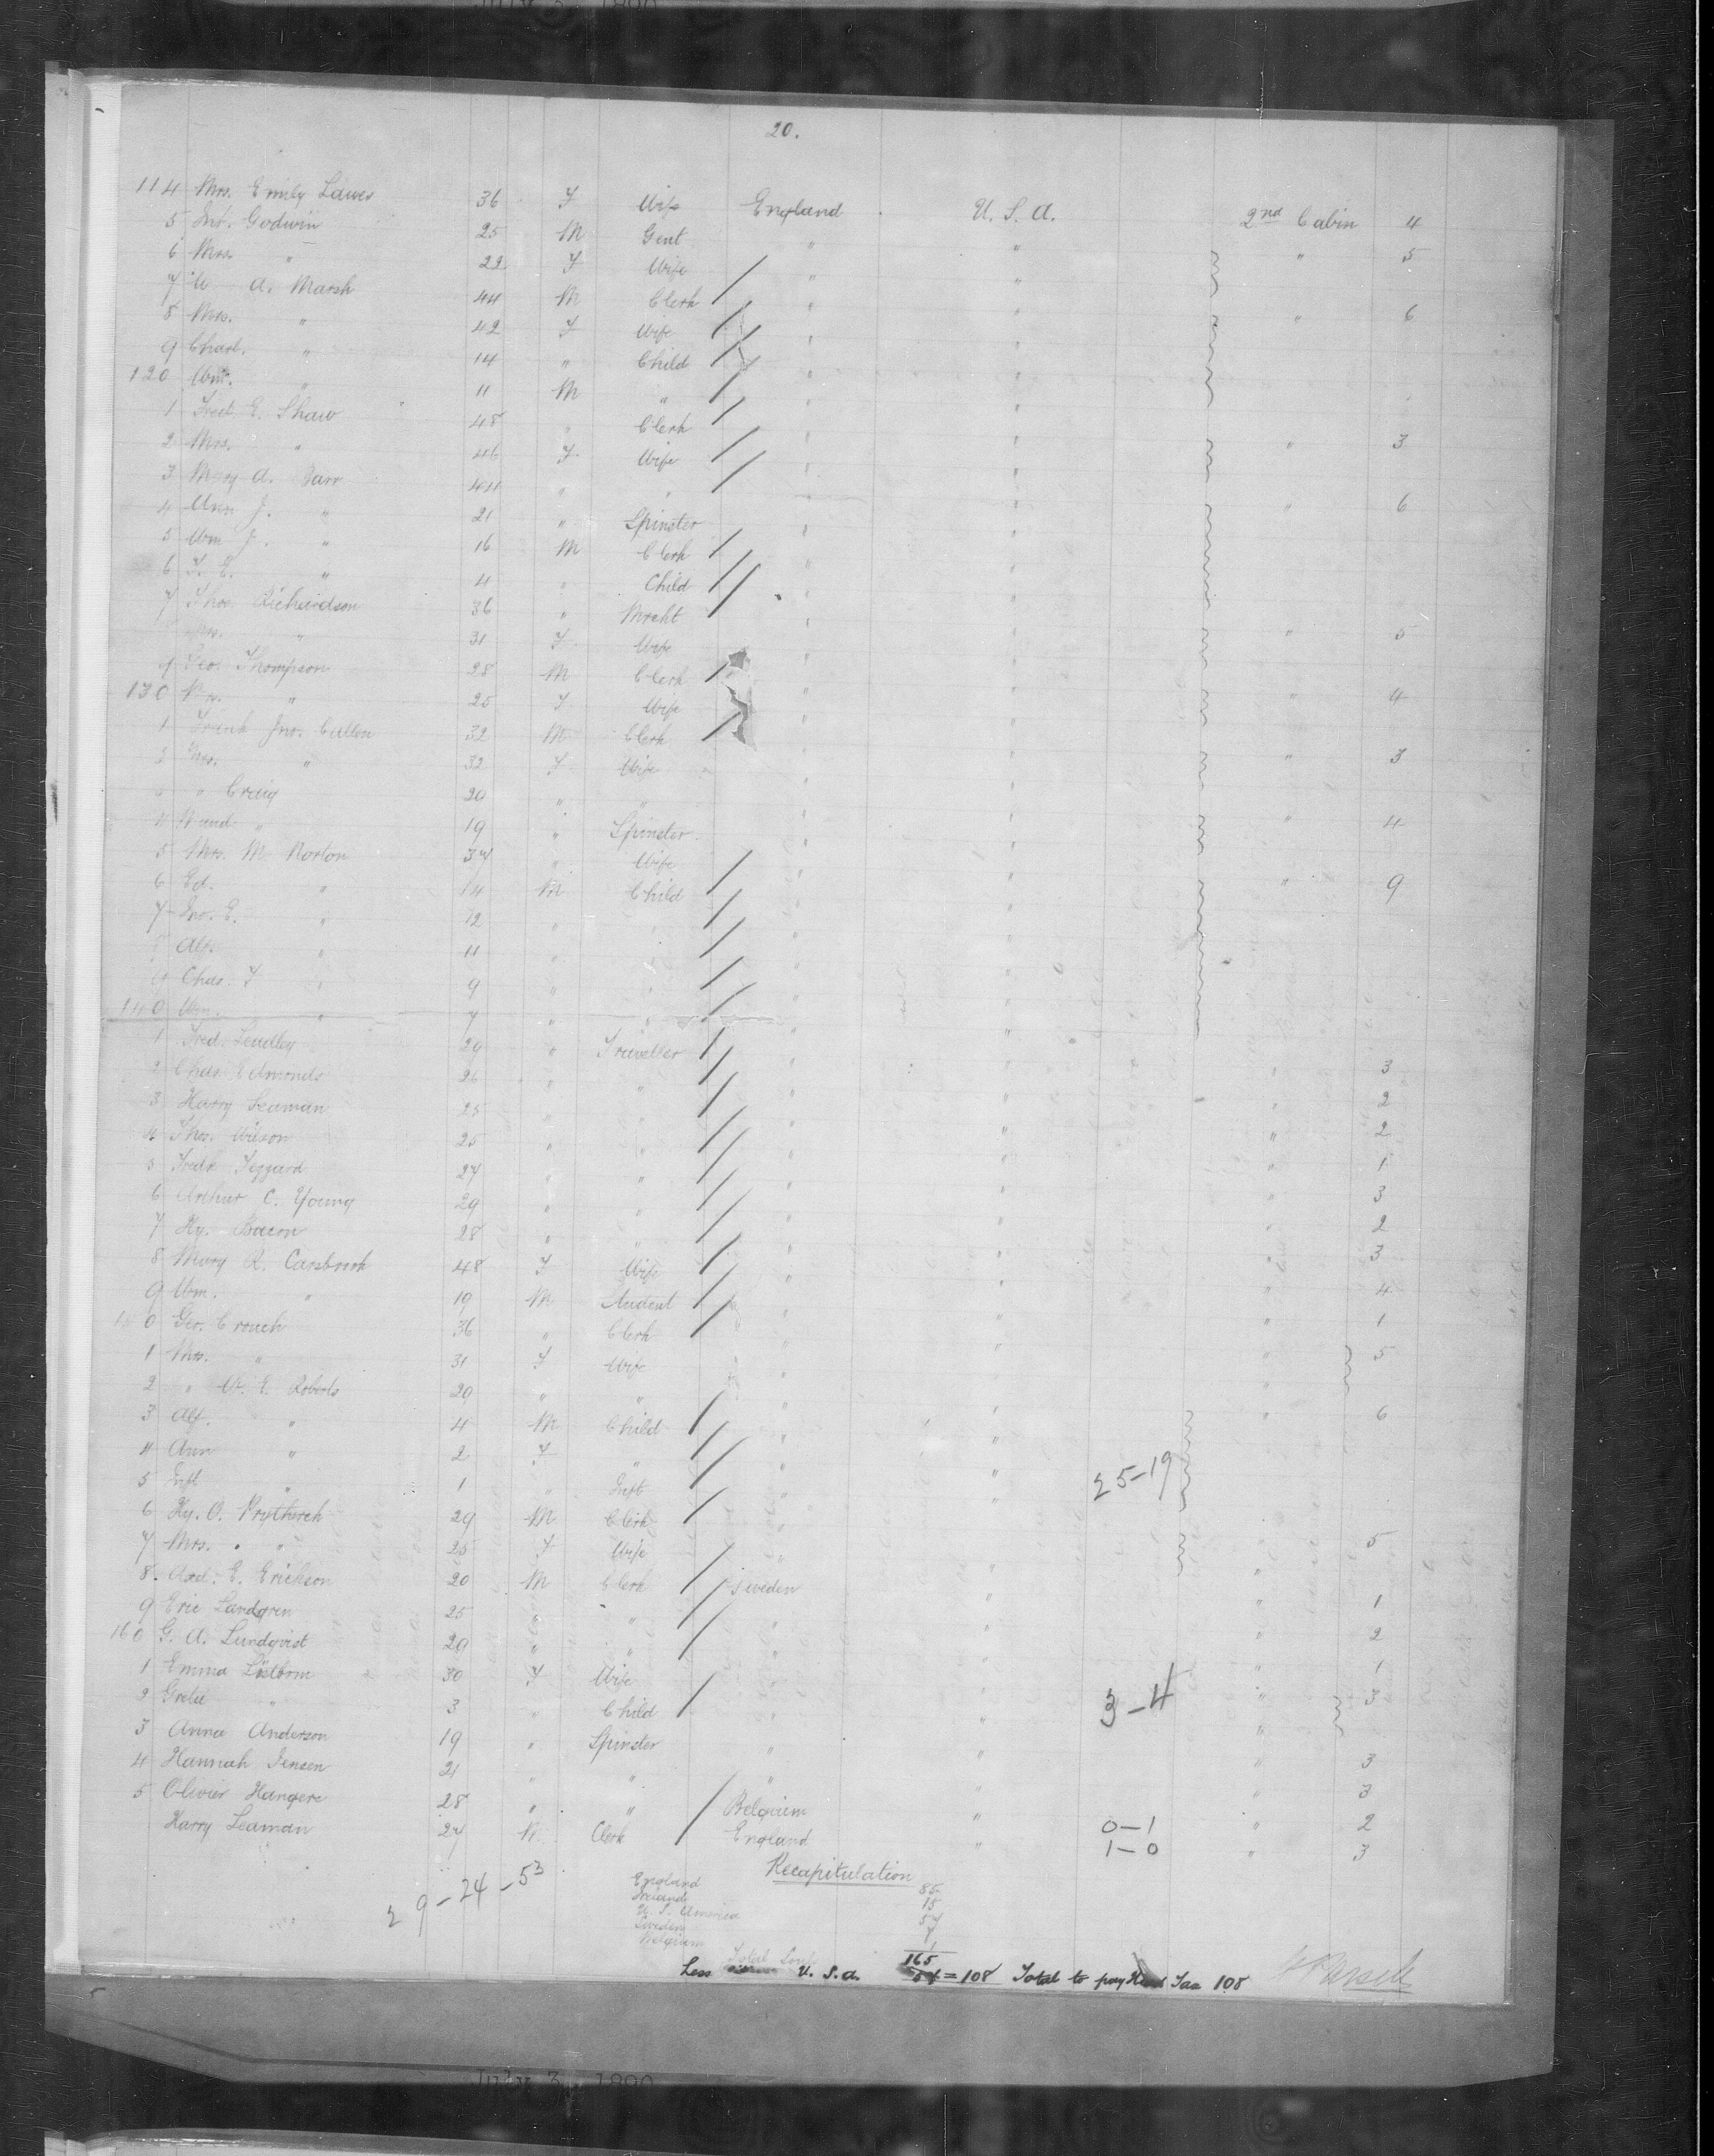 20.
114 Mrs. Emily Lawes 36 F Wife England U. S. A. 2nd Cabin 4
5 Jno. Godwin 25 M Gent " " " 5
6 Mrs. " 22 F Wife " "
7 W. A. Marsh 44 M Clerk " " " 6
8 Mrs. " 42 F Wife " "
9 Charl. " 14 " Child " "
120 Wm. " 11 M " " "
1 Fred. E. Shaw 48 " Clerk " " " 3
2 Mrs. " 46 F Wife " "
3 Mary A. 44 " " " " " 6
4 Ann J. " 21 " Spinster " "
5 Wm J. " 16 M Clerk " "
6 F. E. " 4 " Child " "
7 Thos. Richardson 36 " Mrcht " " " 5
Mrs. " 31 F Wife " "
9 Geo. Thompson 28 M Clerk " " " 4
130 Mrs. " 25 F Wife " "
1 Frank Jno. Cullen 32 M Clerk " " " 3
2 Mrs. " 32 F Wife " "
" Craig 20 " " " " " 4
4 Maud " 19 " Spinster " "
5 Mrs. M. Norton 37 " Wife " " " 9
6 Ed. " 14 M Child " "
7 Jno. E. " 12 " " " "
8 Alf. " 11 " " " "
9 Chas. F " 9 " " " "
140 Wm. " 7 " " " "
1 Fred. Lendley 29 " Traveller " " " 3
2 Chas. Edmonds 26 " " " " " 2
3 Harry Seaman 25 " " " " " 2
4 Thos. Wilson 25 " " " " " 1
5 Fredk 27 " " " " " 3
6 Arthur C. Young 29 " " " " " 2
7 Hy. Bacon 28 " " " " " 3
8 Mary R. Carsbrook 48 F Wife " " " 4
9 Wm. " 19 M Student " " " 1
150 Geo. Crouch 36 " Clerk " " " 5
1 Mrs. " 31 F Wife " " "
2 " A. E. Roberts 29 " " " " " 6
3 Alf. " 4 M Child " "
4 Ann " 2 F " " " 25-19
5 Inft " 1 " Inft " "
6 Hy. O. Prytherch 29 M Clerk " " " 5
7 Mrs. " 25 F Wife " " "
8 Axel. E. Erickson 20 M Clerk Sweden " " 1
9 Eric Landgren 25 " " " " " 2
160 G. A. Lundqvist 29 " " " " " 1
1 Emma 30 F Wife " " " 3
2 " 3 " Child " " 3-4 "
3 Anna Anderson 19 " Spinster " " " 3
4 Hannah Jensen 21 " " " " " 3
5 Olivier Hangere 28 " " Belgium " 0-1 " 2
Harry Seaman 27 M. Clerk England " 1-0 " 3
Recapitulation
29-24-53
England 85
Ireland 15
U. S. America 57
Sweden 7
Belgium 1
165
Less U. S. A. 57 = 108 Total to pay Head Tax 108
July 3, 1890